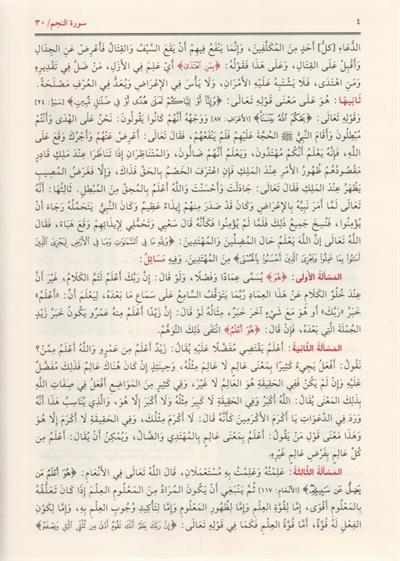 ٤ سورة النجم/ ٣٠
الدُّعَاءِ [كلُّ] أَحَدٍ مِنَ المُكَلَّفِينَ، وَإِنَّمَا يَنْفَعُ فِيهِمْ أَنْ يَقَعَ السَّيْفُ وَالقِتَالُ فَأَعْرِضْ عَنِ الجِدَالِ
وَأَقْبِلْ عَلَى القِتَالِ، وَعَلَى هَذَا فَقَوْلُهُ: ﴿بِمَنِ اهْتَدَىٰ﴾ أَيْ عَلِمَ فِي الأَزَلِ، مَنْ ضَلَّ فِي تَقْدِيرِهِ
وَمَنِ اهْتَدَى، فَلَا يَشْتَبِهُ عَلَيْهِ الأَمْرَانِ، وَلَا يَأْسَ فِي الإِعْرَاضِ وَيُعَدُّ فِي العُرْفِ مَصْلَحَةً.
ثَانِيهَا: هُوَ عَلَى مَعْنَى قَوْلِهِ تَعَالَى: ﴿وَإِنَّا أَوْ إِيَّاكُمْ لَعَلَىٰ هُدًى أَوْ فِي ضَلَالٍ مُبِينٍ﴾ [سَبَأ: ٢٤]
وَقَوْلِهِ تَعَالَى: ﴿يَحْكُمَ اللَّهُ بَيْنَنَا﴾ [الأَعْرَافِ: ٨٧] وَوَجْهُهُ أَنَّهُمْ كَانُوا يَقُولُونَ: نَحْنُ عَلَى الهُدَى وَأَنْتُمْ
مُبْطِلُونَ وَأَقَامَ النَّبِيُّ ﷺ الحُجَّةَ عَلَيْهِمْ فَلَمْ يَنْفَعْهُمْ، فَقَالَ تَعَالَى: أَعْرِضْ عَنْهُمْ وَأَجْرُكَ وَقَعَ عَلَى
اللَّهِ، فَإِنَّهُ يَعْلَمُ أَنَّكُمْ مُهْتَدُونَ، وَيَعْلَمُ أَنَّهُمْ ضَالُّونَ، وَالمُتَنَاظِرَانِ إِذَا تَنَاظَرَا عِنْدَ مَلِكٍ قَادِرٍ
مَقْصُودُهُمْ ظُهُورُ الأَمْرِ عِنْدَ المَلِكِ فَإِنِ اعْتَرَفَ الخَصْمُ بِالحَقِّ فَذَاكَ، وَإِلَّا فَغَرَضُ المُصِيبِ
يَظْهَرُ عِنْدَ المَلِكِ فَقَالَ تَعَالَى: جَادَلْتَ وَأَحْسَنْتَ وَاللَّهُ أَعْلَمُ بِالمُحِقِّ مِنَ المُبْطِلِ. ثَالِثُهَا: أَنَّهُ
تَعَالَى لَمَّا أَمَرَ نَبِيَّهُ بِالإِعْرَاضِ وَكَانَ قَدْ صَدَرَ مِنْهُمْ إِيذَاءٌ عَظِيمٌ وَكَانَ النَّبِيُّ يَتَحَمَّلُهُ رَجَاءَ أَنْ
يُؤْمِنُوا، فَنُسِخَ جَمِيعُ ذَلِكَ فَلَمَّا لَمْ يُؤْمِنُوا فَكَأَنَّهُ قَالَ سَعْيِي وَتَحَمُّلِي لِإِيذَائِهِمْ وَقَعَ هَبَاءً، فَقَالَ
اللَّهُ تَعَالَى إِنَّ اللَّهَ يَعْلَمُ حَالَ المُضِلِّينَ وَالمُهْتَدِينَ: ﴿وَلِلَّهِ مَا فِي السَّمَاوَاتِ وَمَا فِي الْأَرْضِ لِيَجْزِيَ الَّذِينَ
أَسَاءُوا بِمَا عَمِلُوا وَيَجْزِيَ الَّذِينَ أَحْسَنُوا بِالْحُسْنَى﴾ مِنَ المُهْتَدِينَ. وَفِيهِ مَسَائِلُ:
المَسْأَلَةُ الأُولَى: ﴿هُوَ﴾ يُسَمَّى عِمَادًا وَفَصْلًا، وَلَوْ قَالَ: إِنَّ رَبَّكَ أَعْلَمُ لَتَمَّ الكَلَامُ، غَيْرَ أَنَّ
عِنْدَ خُلُوِّ الكَلَامِ عَنْ هَذَا العِمَادِ رُبَّمَا يَتَوَقَّفُ السَّامِعُ عَلَى سَمَاعِ مَا بَعْدَهُ، لِيَعْلَمَ أَنَّ: «أَعْلَمُ»
خَبَرُ «رَبَّكَ» أَوْ هُوَ مَعَ شَيْءٍ آخَرَ خَبَرٌ، مِثَالُهُ لَوْ قَالَ: إِنَّ زَيْدًا أَعْلَمُ مِنْهُ عَمْرٌو يَكُونُ خَبَرُ زَيْدٍ
الجُمْلَةَ الَّتِي بَعْدَهُ، فَإِنْ قَالَ: ﴿هُوَ أَعْلَمُ﴾ انْتَفَى ذَلِكَ التَّوَهُّمُ.
المَسْأَلَةُ الثَّانِيَةُ: أَعْلَمُ يَقْتَضِي مُفَضَّلًا عَلَيْهِ يُقَالُ: زَيْدٌ أَعْلَمُ مِنْ عَمْرٍو وَاللَّهُ أَعْلَمُ مِمَّنْ؟
نَقُولُ: أَفْعَلُ يَجِيءُ كَثِيرًا بِمَعْنَى عَالِمٍ لَا عَالِمَ مِثْلُهُ، وَحِينَئِذٍ إِنْ كَانَ هُنَاكَ عَالِمٌ فَذَلِكَ مُفَضَّلٌ
عَلَيْهِ وَإِنْ لَمْ يَكُنْ فَفِي الحَقِيقَةِ هُوَ العَالِمُ لَا غَيْرَ، وَفِي كَثِيرٍ مِنَ المَوَاضِعِ أَفْعَلُ فِي صِفَاتِ اللَّهِ
بِذَلِكَ المَعْنَى يُقَالُ: اللَّهُ أَكْبَرُ وَفِي الحَقِيقَةِ لَا كَبِيرَ مِثْلُهُ وَلَا أَكْبَرَ إِلَّا هُوَ، وَالَّذِي يُنَاسِبُ هَذَا أَنَّهُ
وَرَدَ فِي الدَّعَوَاتِ يَا أَكْرَمَ الأَكْرَمِينَ كَأَنَّهُ قَالَ: لَا أَكْرَمَ مِثْلُكَ، وَفِي الحَقِيقَةِ لَا أَكْرَمَ إِلَّا هُوَ
وَهَذَا مَعْنَى قَوْلِ مَنْ يَقُولُ: أَعْلَمُ بِمَعْنَى عَالِمٍ بِالمُهْتَدِي وَالضَّالِّ، وَيُمْكِنُ أَنْ يُقَالَ: أَعْلَمُ مِنْ
كُلِّ عَالِمٍ بِفَرْضِ عَالِمٍ غَيْرِهِ.
المَسْأَلَةُ الثَّالِثَةُ: عَلِمْتُهُ وَعَلِمْتُ بِهِ مُسْتَعْمَلَانِ، قَالَ اللَّهُ تَعَالَى فِي الأَنْعَامِ: ﴿هُوَ أَعْلَمُ مَن
يَضِلُّ عَن سَبِيلِهِ﴾ [الأَنْعَامِ: ١١٧] ثُمَّ يَنْبَغِي أَنْ يَكُونَ المُرَادُ مِنَ المَعْلُومِ العِلْمَ إِذَا كَانَ تَعَلُّقُهُ
بِالمَعْلُومِ أَقْوَى، إِمَّا لِقُوَّةِ العِلْمِ وَإِمَّا لِظُهُورِ المَعْلُومِ وَإِمَّا لِتَأْكِيدِ وُجُوبِ العِلْمِ بِهِ، وَإِمَّا لِكَوْنِ
الفِعْلِ لَهُ قُوَّةٌ، أَمَّا قُوَّةُ العِلْمِ فَكَمَا فِي قَوْلِهِ تَعَالَى: ﴿إِنَّ رَبَّكَ يَعْلَمُ أَنَّكَ تَقُومُ أَدْنَىٰ مِن ثُلُثَيِ اللَّيْلِ وَنِصْفَهُ﴾